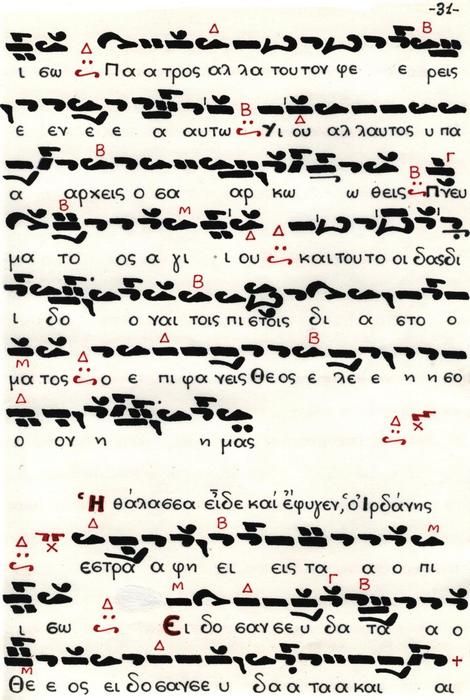 -31-
ι σω Πα α τρος αλ λα του τον φε ε ρεις
ε εν ε ε α αυτω Υι ου αλ λαυτος υ πα
α αρχεις ο σα αρ κω ω θεις Πνευ
μα το ος α γι ι ου και του το οι δας δι
ι δο ο ναι τοις πι στοις δι α στο ο
μα τος ο ε πι φα νεις Θε ος ε λε ε η η σο
ο ον η η μας
Ἡ θάλασσα εἶδε καί ἔφυγεν, ὁ Ἰρδάνης
εστρα α φη ει εις τα α ο πι
ι σω Ει δο σαν σε υ δα τα α ο
Θε ε ος ει δο σαν σε υ δα α τα α και αι